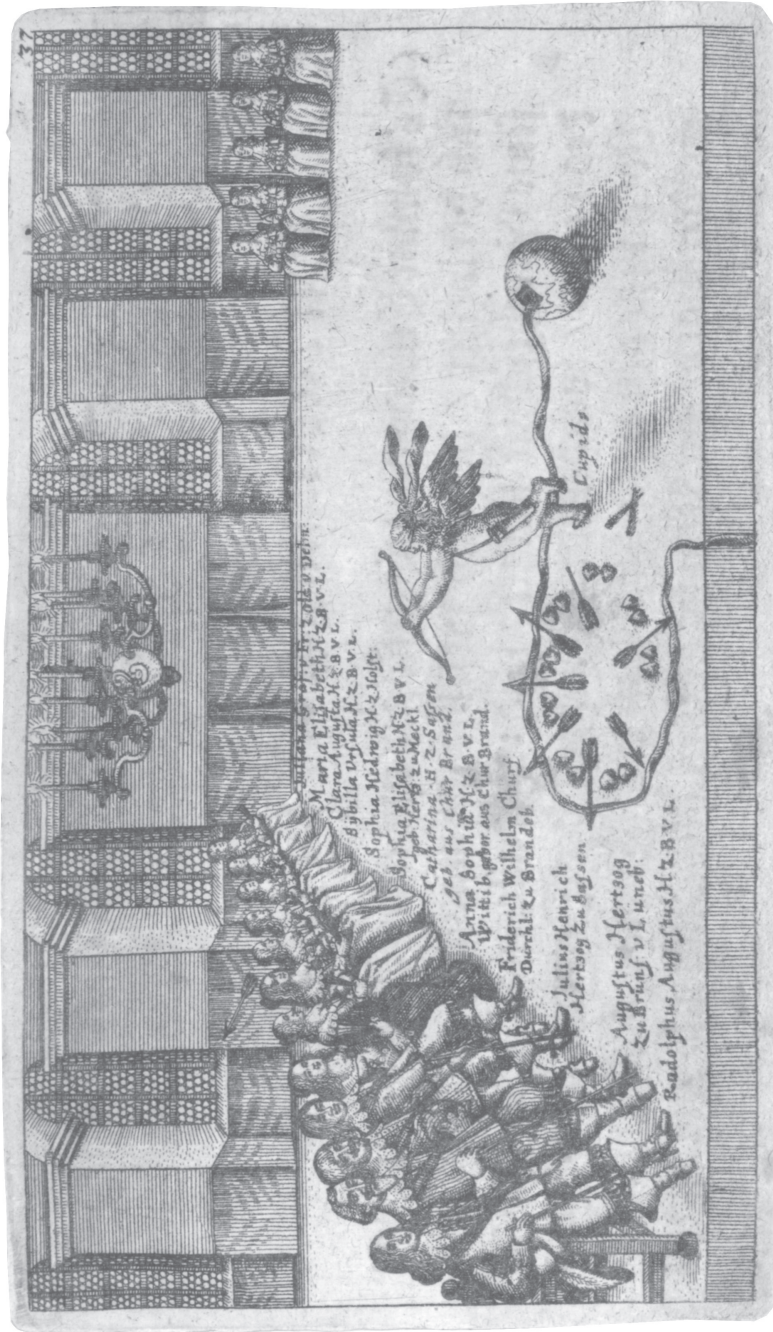 37
Maria Elisabeth H. z. B. V. L.
Clara Augusta H. z. B. V. L.
Sÿbilla Vrsula H. z. B. V. L.
Sophia Hedwig H z Holst:
Sophia Elisabeth H. z. B V L.
geb Hertz. zu Meckl
Catharina. H. Z. Sassen
geb aus Chur Brand.
Anna Sophia H. z. B. V. L.
Wittib. gebor aus Chur Brand.
Friderich Wilhelm Churf.
Durchl: zu Brandeb
Julius Henrich
Hertzog zu Sassen
Augustus Hertzog
zu Brunf. v L uneb:
Radolphus Augustus H z B. V L
Cupido